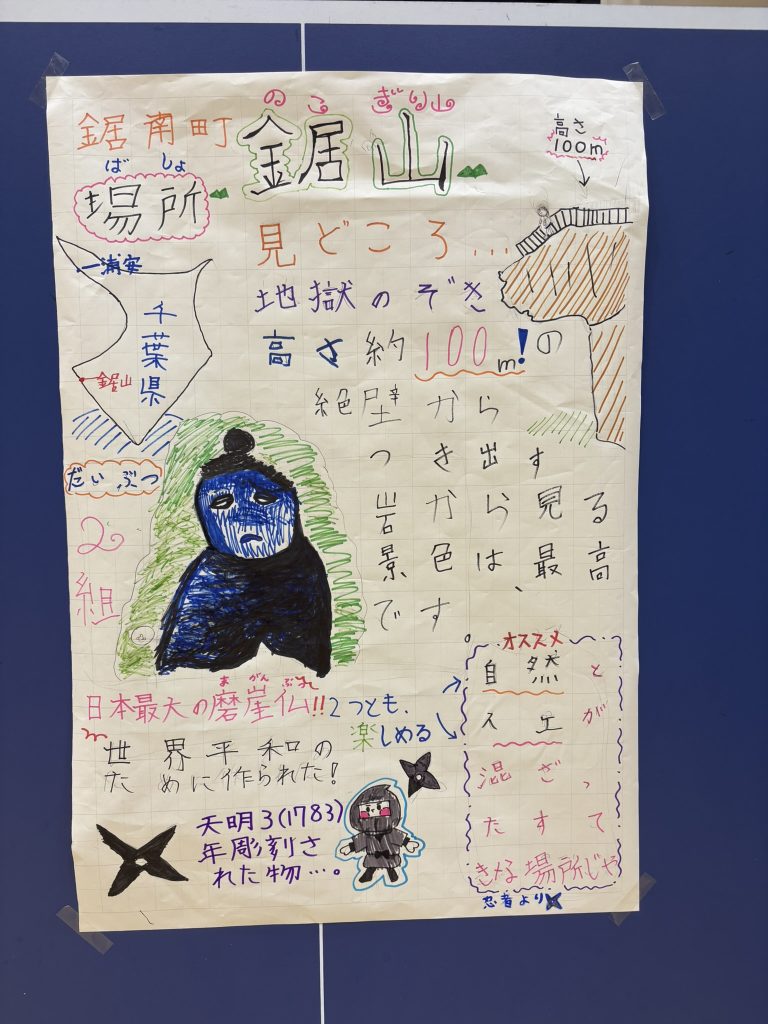 のこぎり山
鋸南町 鋸山
高さ
100m
ばしょ
場所
見どころ...
・浦安
千葉県
鋸山
地獄のぞき
高さ約100m!の
絶壁から
つき出す
岩から見る
景色は、最高
です
だいぶつ
2組
まがいぶつ
日本最大の磨崖仏!!
2つとも、
楽しめる
世界平和の
ために作られた!
天明3(1783)
年彫刻さ
れた物…。
オススメ
自然と
人工が
混ざっ
たすて
きな場所じゃ
忍者より